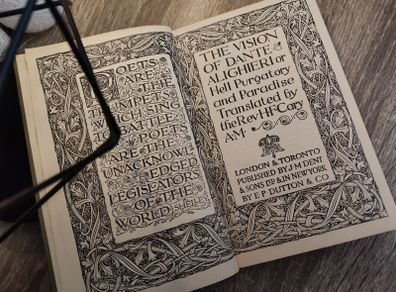 POETS
ARE THE
TRUMPETS
WHICH SING
TO BATTLE
POETS
ARE THE
UNACKNOWL
EDGED
LEGISLATORS
OF THE
WORLD
SHELLEY
THE VISION
OF DANTE
ALIGHIERI or
Hell Purgatory
and Paradise
Translated by
the Rev. H.F. Cary
A.M.
LONDON & TORONTO
PUBLISHED BY J.M. DENT
& SONS LTD & IN NEW YORK
BY E. P. DUTTON & CO